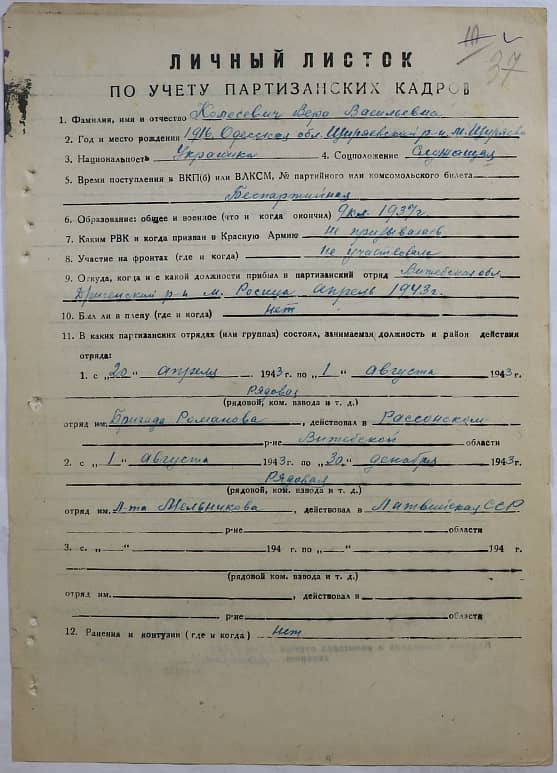 37
ЛИЧНЫЙ ЛИСТОК
ПО УЧЕТУ ПАРТИЗАНСКИХ КАДРОВ
1. Фамилия, имя и отчество Колесевич Вера Васильевна
2. Год и место рождения 1916 Одесская обл. Ширяевский р-н, м. Ширяево
3. Национальность Украинка 4. Соцположение Служащая
5. Время поступления в ВКП(б) или ВЛКСМ, № партийного или комсомольского билета
Беспартийная
6. Образование: общее и военное (что и когда окончил) 9 кл. 1937 г.
7. Каким РВК и когда призван в Красную Армию не призывалась
8. Участие на фронтах (где и когда) Не участвовала
9. Откуда, когда и с какой должности прибыл в партизанский отряд Витебская обл.
Дрисенский р-н м. Росица апрель 1943 г.
10. Был ли в плену (где и когда) нет
11. В каких партизанских отрядах (или группах) состоял, занимаемая должность и район действия
отряда:
1. с „20“ апреля 1943 г. по „1“ августа 1943 г.
Рядовая
(рядовой, ком. взвода и т. д.)
отряд им. Бригада Романова, действовал в Россонском
р-не Витебской области
2. с „1“ августа 1943 г. по „30“ декабря 1943 г.
Рядовая
(рядовой, ком. взвода и т. д.)
отряд им. Л-та Мельникова, действовал в Латвийская ССР
р-не области
3. с „ “ 194 г. по „ “ 194 г.
(рядовой ком. взвода и т. д.)
отряд им. , действовал в
р-не области
12. Ранения и контузии (где и когда) нет